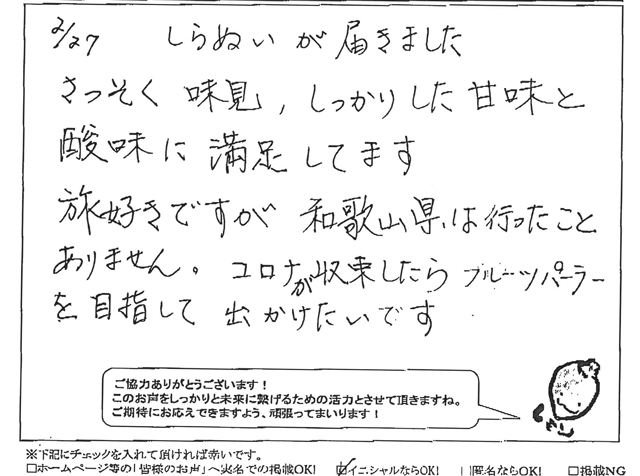 2/27 しらぬいが届きました
さっそく味見,しっかりした甘味と
酸味に満足してます
旅好きですが和歌山県は行ったこと
ありません。コロナが収束したらフルーツパーラー
を目指して出かけたいです
ご協力ありがとうございます!
このお声をしっかりと未来に繋げるための活力とさせて頂きますね。
ご期待にお応えできますよう、頑張ってまいります!
※下記にチェックを入れて頂ければ幸いです。
□ホームページ等の「皆様のお声」へ実名での掲載OK! ☑イニシャルならOK! □匿名ならOK! □掲載NG